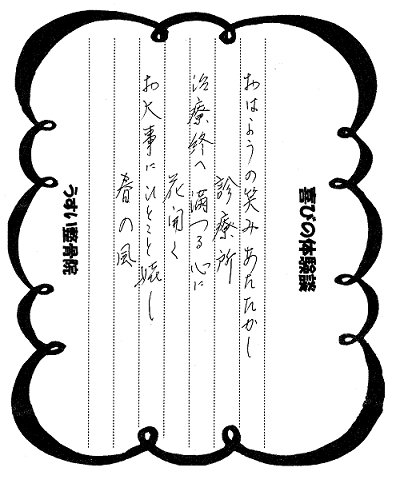 喜びの体験談
おはようの笑みあたたかし
診療所
治療終へ満つる心に
花開く
お大事にひとこと嬉し
春の風
うすい整骨院